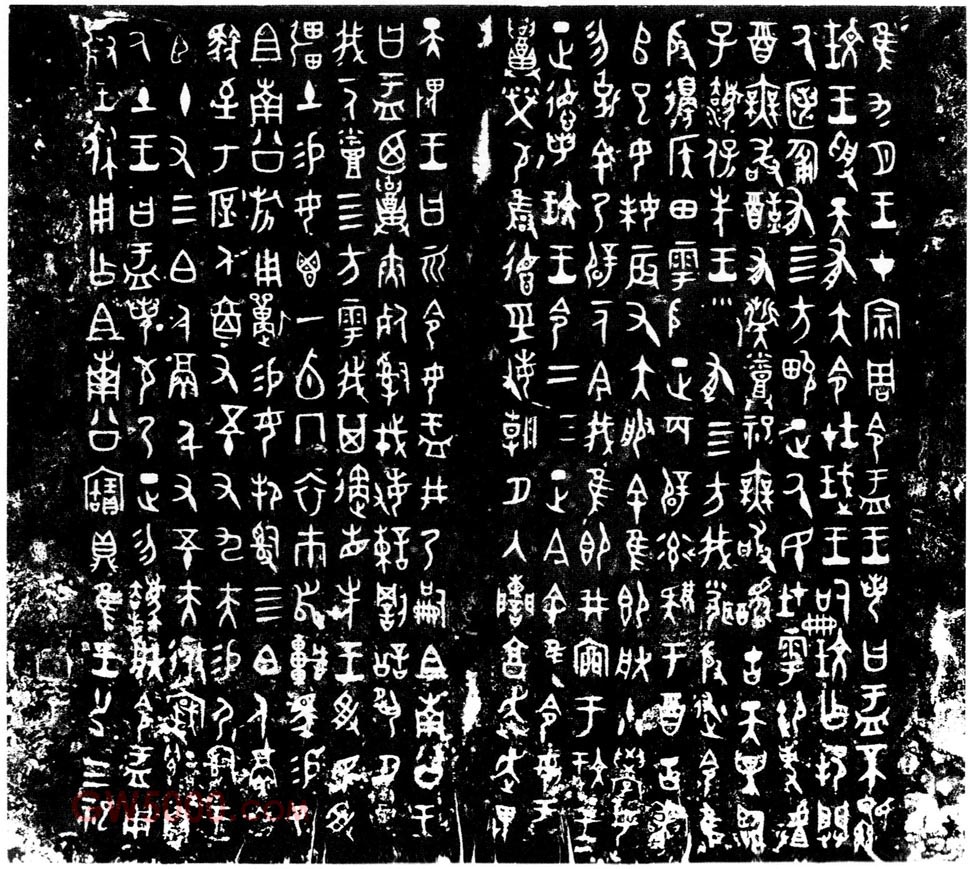 隹九月王才宗周令盂王若曰盂不顯
玟王受天有大令在珷王嗣玟乍邦闢
氒匿匍有四方畯正氒民在雩御事䖒
酉無敢酖有祡烝祀無敢擾古天異臨
子灋保先王有四方我聞殷述令隹
殷邊侯田雩殷正百辟率肄于酉古喪
𠂤巳女妹辰又大服余隹即朕小學女
勿克余乃辟一人今我隹即井㐭于玟王
正德若玟王令二三正今余隹令女盂
召榮敬雍德巠敏朝夕入諫享奔走畏
天畏王曰而令女盂井乃嗣且南公王
曰盂廼召夾死司戎敏諫罰訟夙夕召
我一人烝四方雩我其遹省先王受民受
疆土易女鬯一卣冂衣巿舄車馬易乃
且南公旂用狩易女邦司四白人鬲自
馭至于庶人六百又五十又九夫易尸司王
臣十又三白人鬲千又五十夫極寽遷自
氒土王曰盂若敬乃正勿灋朕令盂用
對王休用乍且南公寶鼎隹王廿又三祀
GW5000.COM